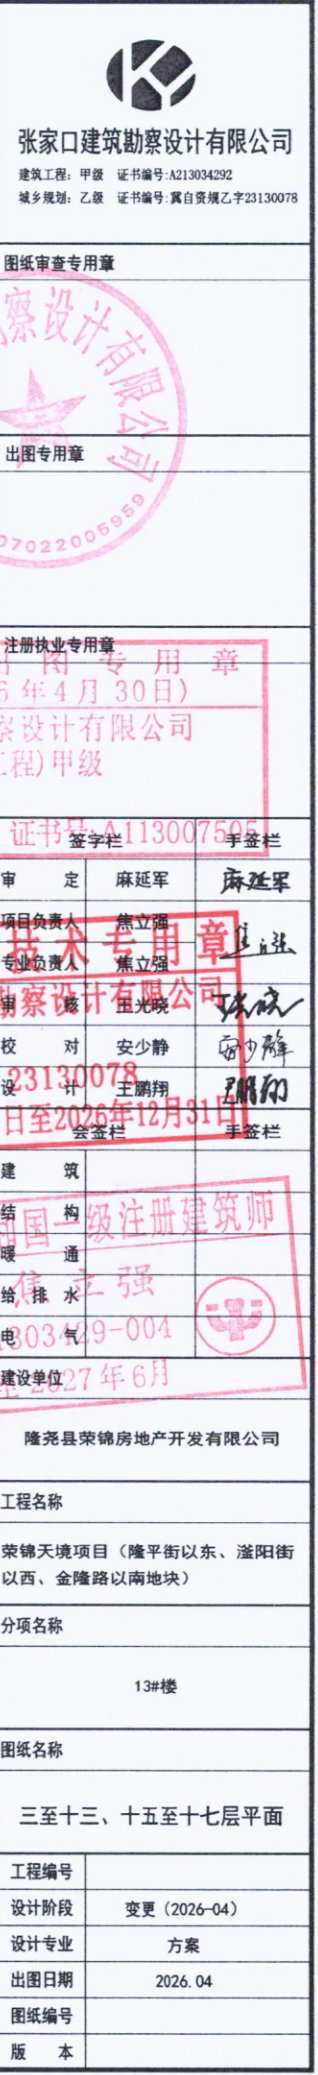 张家口建筑勘察设计有限公司
建筑工程: 甲级 证书编号:A213034292
城乡规划: 乙级 证书编号:冀自资规乙字23130078
图纸审查专用章
察设计有限公司
出图专用章
07022005959
注册执业专用章
出图专用章
6年4月30日)
察设计有限公司
工程)甲级
证书号:A113007505
签字栏 手签栏
审 定 麻延军 麻延军
项目负责人 焦立强 焦立强
技术专用章
专业负责人 焦立强
勘察设计有限公司
审 核 王光晓
校 对 安少静 安少静
23130078
设 计 王鹏翔 王鹏翔
日至2026年12月31日
会签栏 手签栏
建 筑
结 构
和国一级注册建筑师
暖 通
给 排 水
焦立强
电 气
1303429-004
建设单位
至2027年6月
隆尧县荣锦房地产开发有限公司
工程名称
荣锦天境项目（隆平街以东、滏阳街
以西、金隆路以南地块）
分项名称
13#楼
图纸名称
三至十三、十五至十七层平面
工程编号
设计阶段 变更（2026-04）
设计专业 方案
出图日期 2026.04
图纸编号
版 本